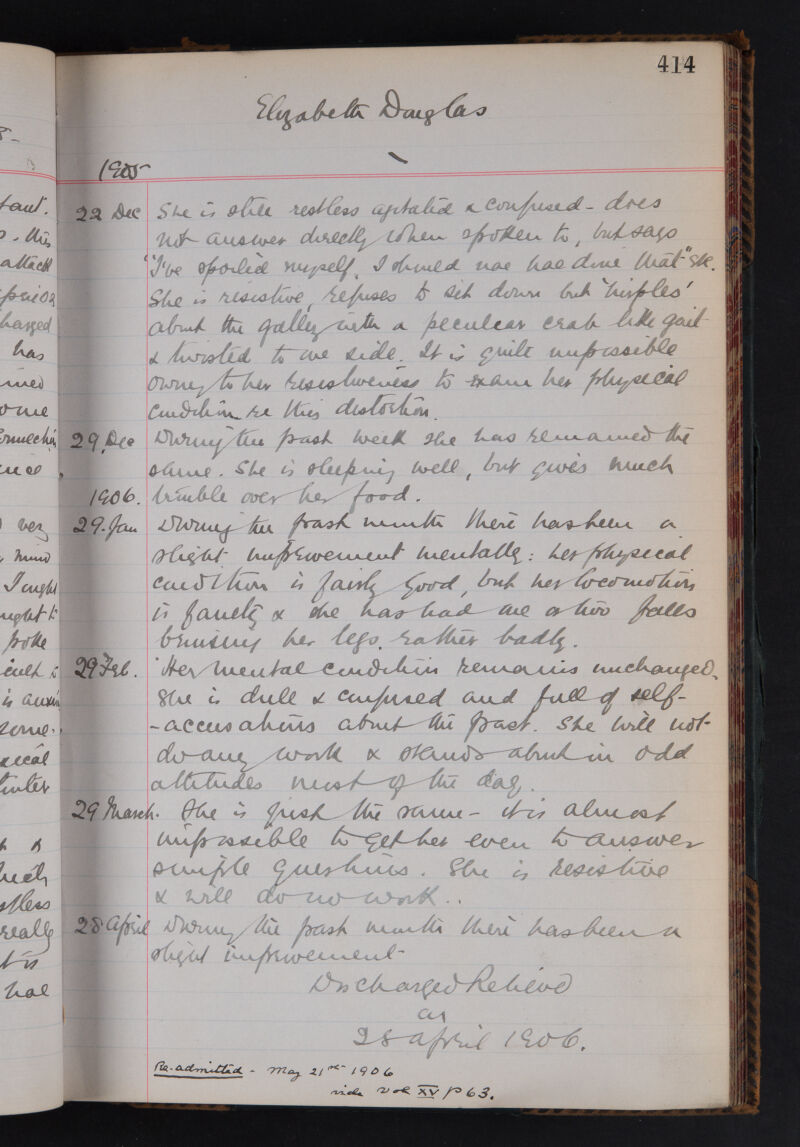 414
Elizabeth Douglas
1905
22 Dec She is still restless agitated & confused - does
not answer directly when spoken to, but says
"I've spoiled myself, I should nae hae dune that" etc.
She is resistive, refuses to sit down but 'hirples'
about the gallery with a peculiar crab like gait
& twisted to one side. It is quite impossible
owing to her resistiveness to exam her physical
condition re this distortion.
29 Dec During the past week she has remained the
same. She is sleeping well, but gives much
1906. trouble over her food.
29. Jan During the past month there has been a
slight improvement mentally: her physical
condition is fairly good, but her locomotion
is faulty & she has had one or two falls
bruising her legs rather badly.
29 Feb. Her mental condition remains unchanged.
She is dull & confused and full of self-
-accusations about the past. She will not
do any work & stands about in odd
attitudes most of the day.
29 March. She is just the same - it is almost
impossible to get her even to answer
simple questions. She is resistive
& will do no work..
28 April During the past month there has been a
slight improvement
Discharged Relieved
on
28 April 1906.
Re-admitted - May 21st 1906
vide vol XV p 63.